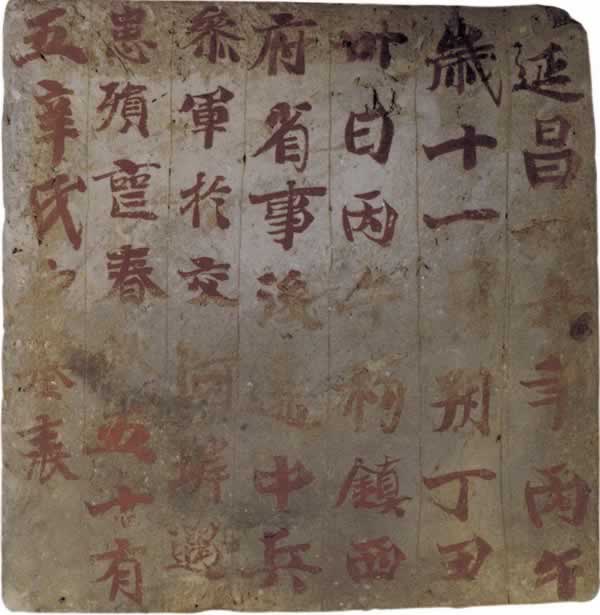 延昌廿六年丙午
歲十一月朔丁丑
卅日丙午初鎮西
府省事後遷中兵
參軍於交河遇
患殞喪春秋五十有
五辛氏之墓表